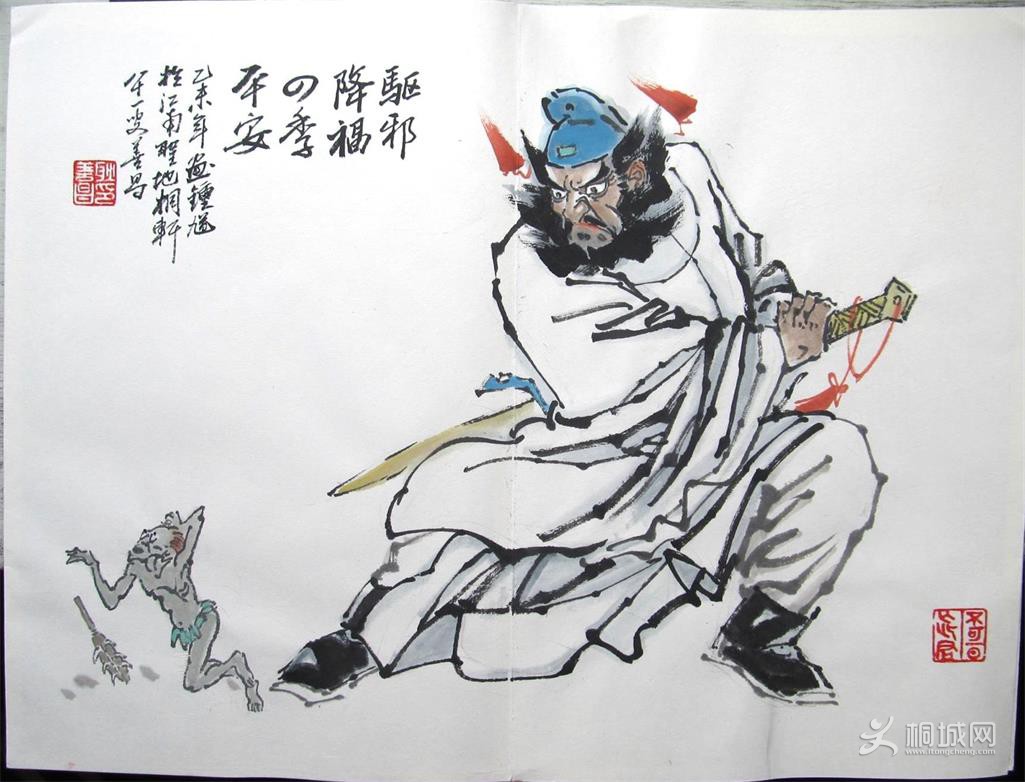 驅邪
降福
四季
平安
乙未年画鍾馗
於江南聖地桐軒
年一叟善昌
耿善昌印
桐城网
www.itongcheng.com